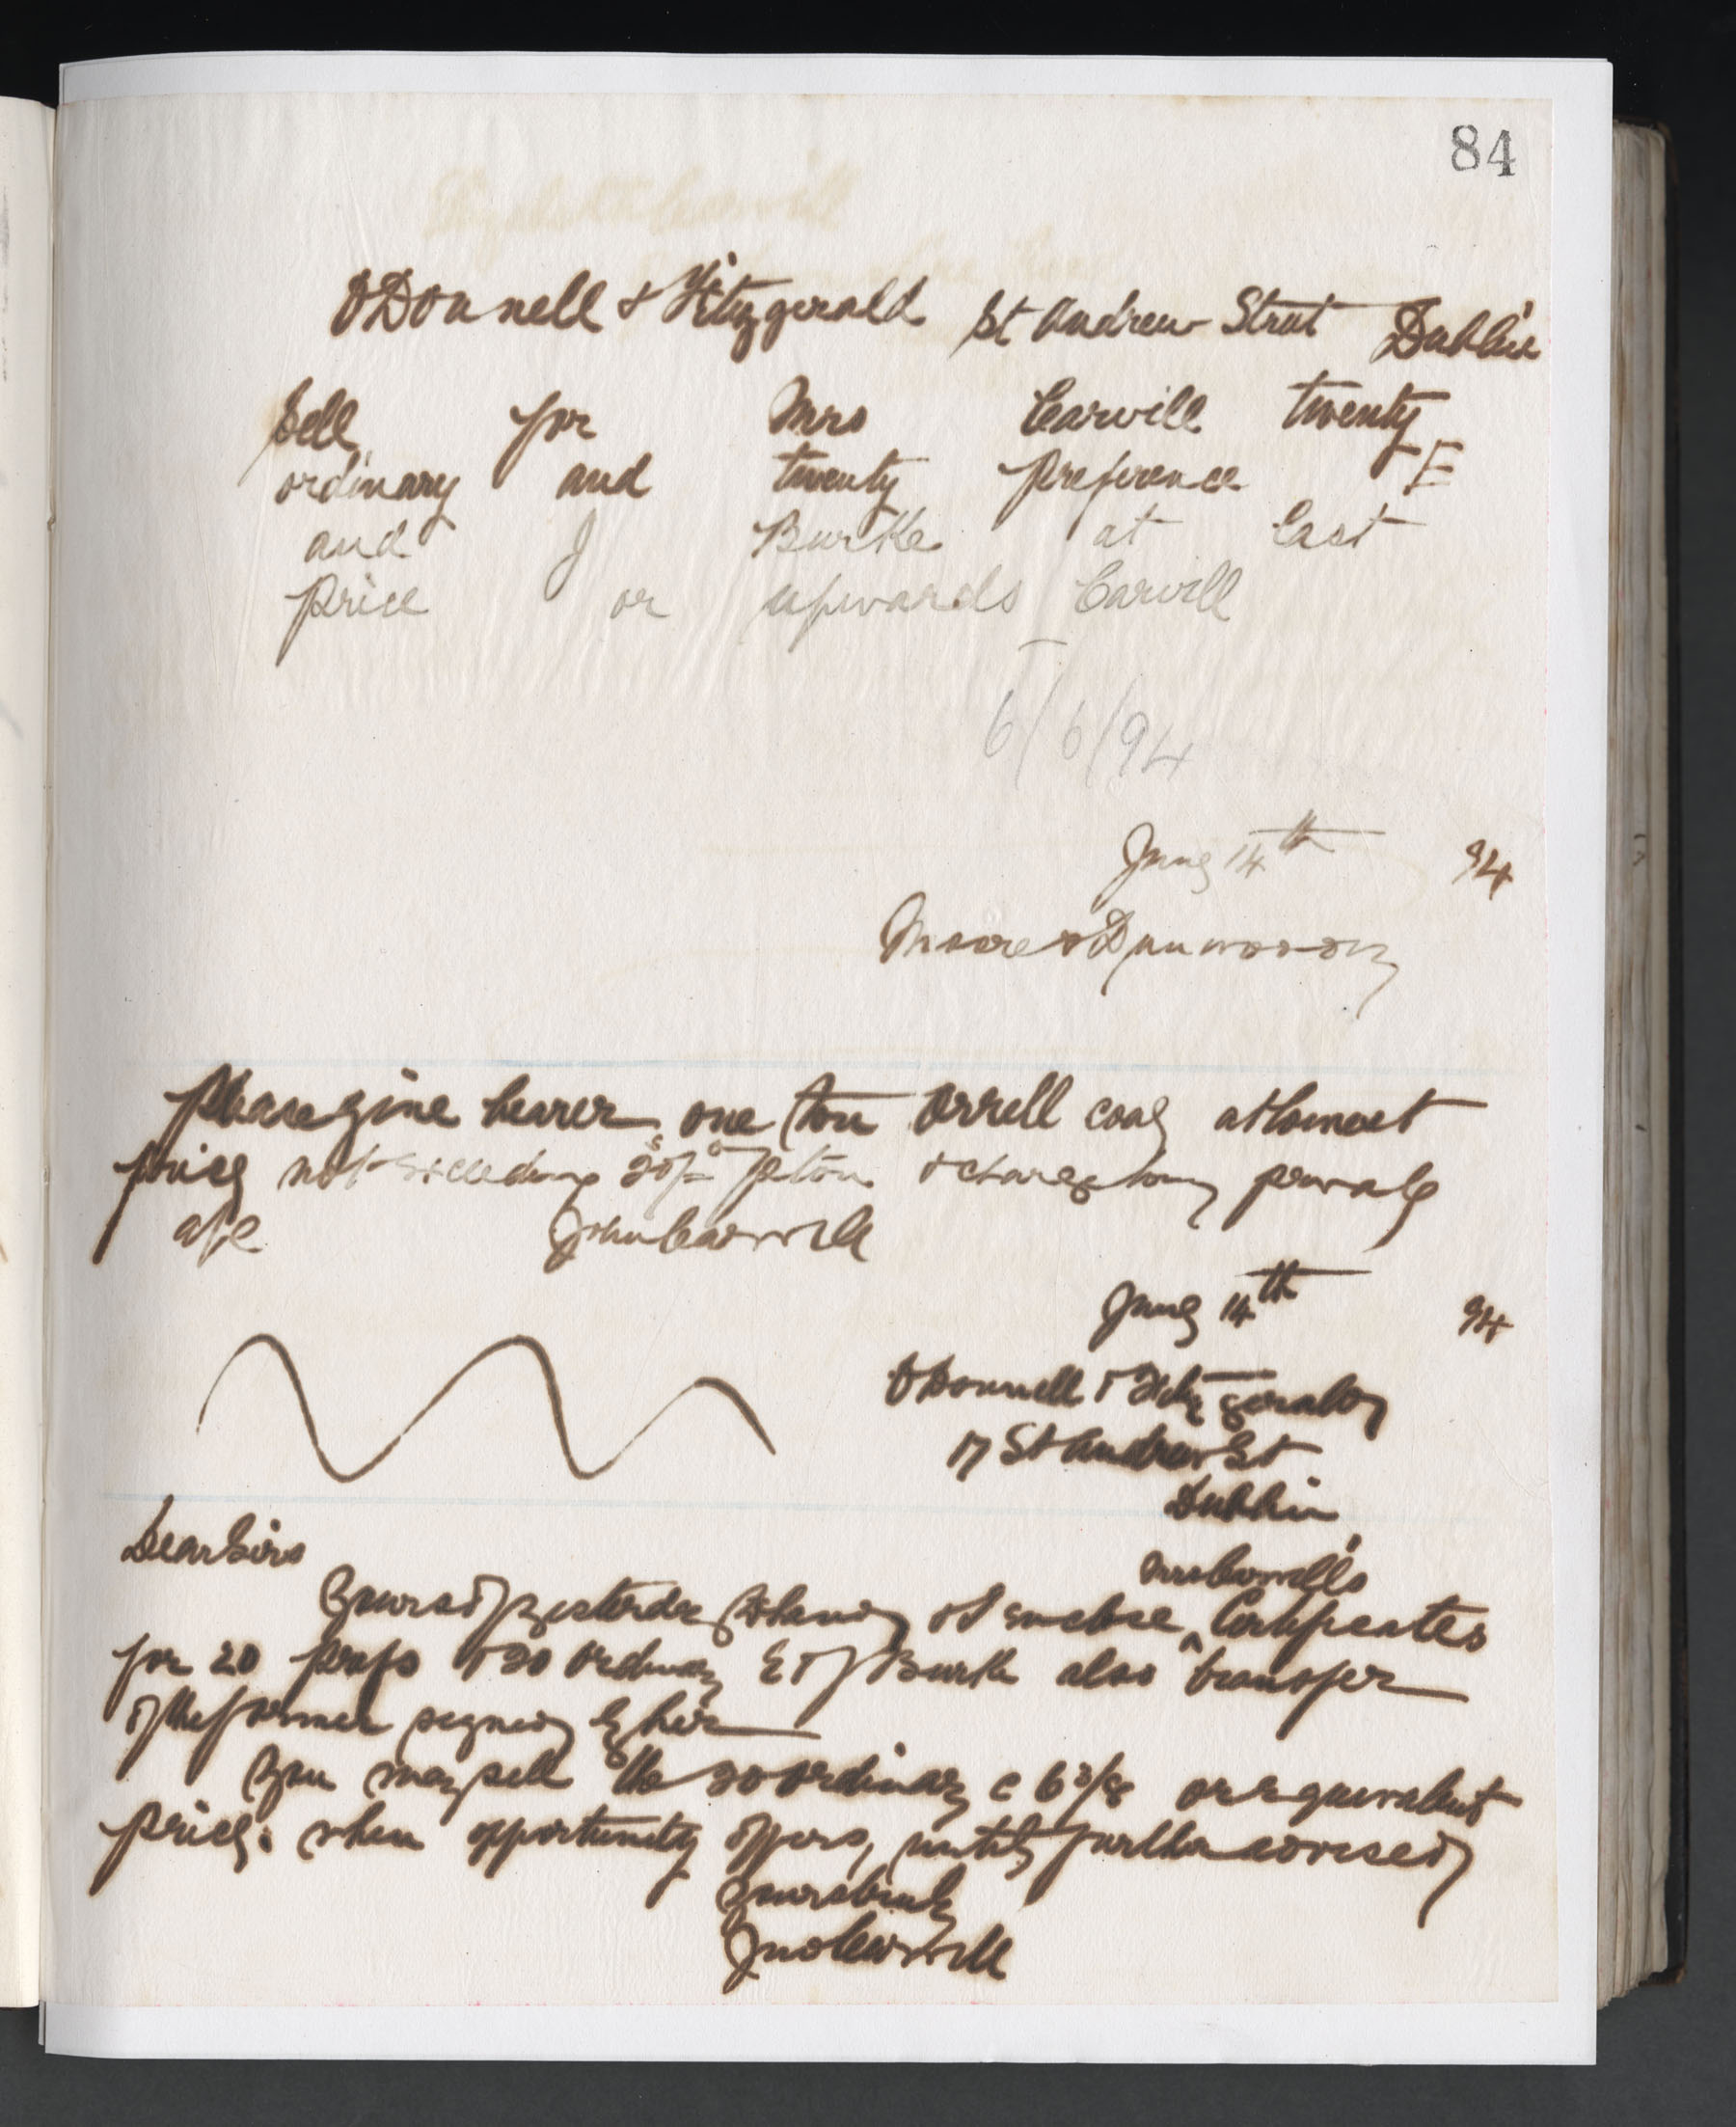 84
O'Donnell & Fitzgerald St Andrew Street Dublin
Sell for Mrs Carvill twenty
ordinary and twenty preference E
and J Burke at last
price or upwards Carvill
6/6/94
June 14th 94
Moore & Dunwoody
Please give bearer one ton Orrell coal at lowest
price not exceeding 20s/- p ton & charge to my private
a/c John Carvill
June 14th 94
O'Donnell & Fitzgerald
17 St Andrew St
Dublin
Dear Sirs
Mrs Carvill's
Yours of yesterday to hand & I enclose ^ Certificates
for 20 prefs & 20 ordinary E & J Burke also transfer
of the former signed by her
You may sell the 20 ordinary @ 6 3/8 or equivalent
price, when opportunity offers, until further advised
Yours truly
Jno Carvill